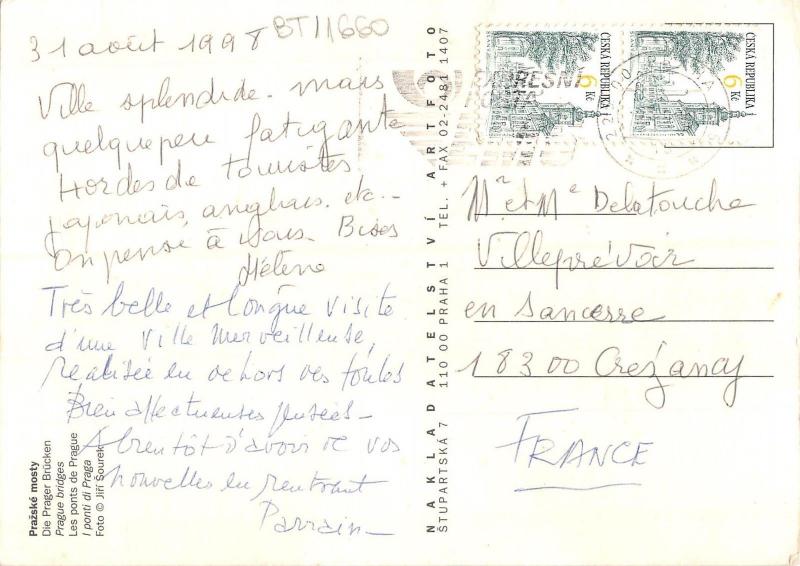 31 août 1998
BT11660
Ville splendide - mais
quelque peu fatigante
Hordes de touristes
japonais, anglais, etc...
On pense à vous. Bises
Hélène
Très belle et longue visite
d'une ville merveilleuse,
réalisée en dehors des foules
Bien affectueuses pensées -
A bientôt d'avoir de vos
nouvelles en rentrant
Parrain -
Pražské mosty
Die Prager Brücken
Prague bridges
Les ponts de Prague
I ponti di Praga
Foto © Jiří Šourek
NAKLADATELSTVÍ ARTFOTO
ŠTUPARTSKÁ 7 110 00 PRAHA 1 TEL. + FAX 02-2481 1407
ČESKÁ REPUBLIKA
6 Kč
ČESKÁ REPUBLIKA
6 Kč
Mr et Me Delatouche
Villeprévoir
en Sancerre
18300 Crézancy
FRANCE